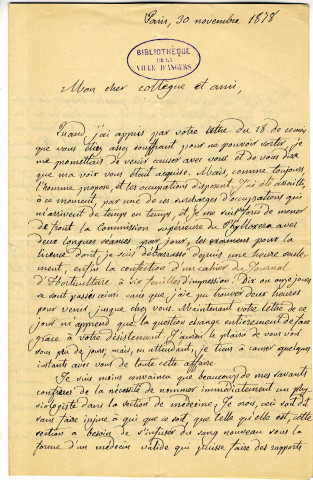 Paris, 30 novembre 1878
BIBLIOTHÈQUE
DE LA
VILLE D'ANGERS
Mon cher collègue et ami,
Quand j'ai appris par votre lettre du 18 de ce mois
que vous étiez assez souffrant pour ne pouvoir sortir, je
me promettais de venir causer avec vous et de vous dire
que ma voix vous était acquise. Mais, comme toujours
l'homme propose, et les occupations disposent. J'ai été assailli,
à ce moment, par une de ces surcharges d'occupations qui
m'arrivent de temps en temps, et je me suis forcé de mener
de front la Commission supérieure du Phylloxera avec
deux longues séances par jour, les examens pour la
licence dont je suis débarrassé depuis une heure seule-
ment, enfin la confection d'un cahier du Journal
d'Horticulture à six feuilles d'impression! Dix ou onze jours
se sont passés ainsi sans que j'aie pu trouver deux heures
pour venir jusque chez vous. Maintenant votre lettre de ce
jour m'apprend que la question change entièrement de face
grâce à votre désistement. J'aurai le plaisir de vous voir
sous peu de jours; mais, en attendant, je tiens à causer quelques
instants avec vous de toute cette affaire.
Je suis moins convaincu que beaucoup de nos savants
confrères de la nécessité de nommer immédiatement un phy-
siologiste dans la section de médecine. Je crois, ceci soit dit
sans faire injure à qui que ce soit, que telle qu'elle est, cette
section a besoin de s'infuser du sang nouveau sous la
forme d'un médecin valide qui puisse faire des rapports